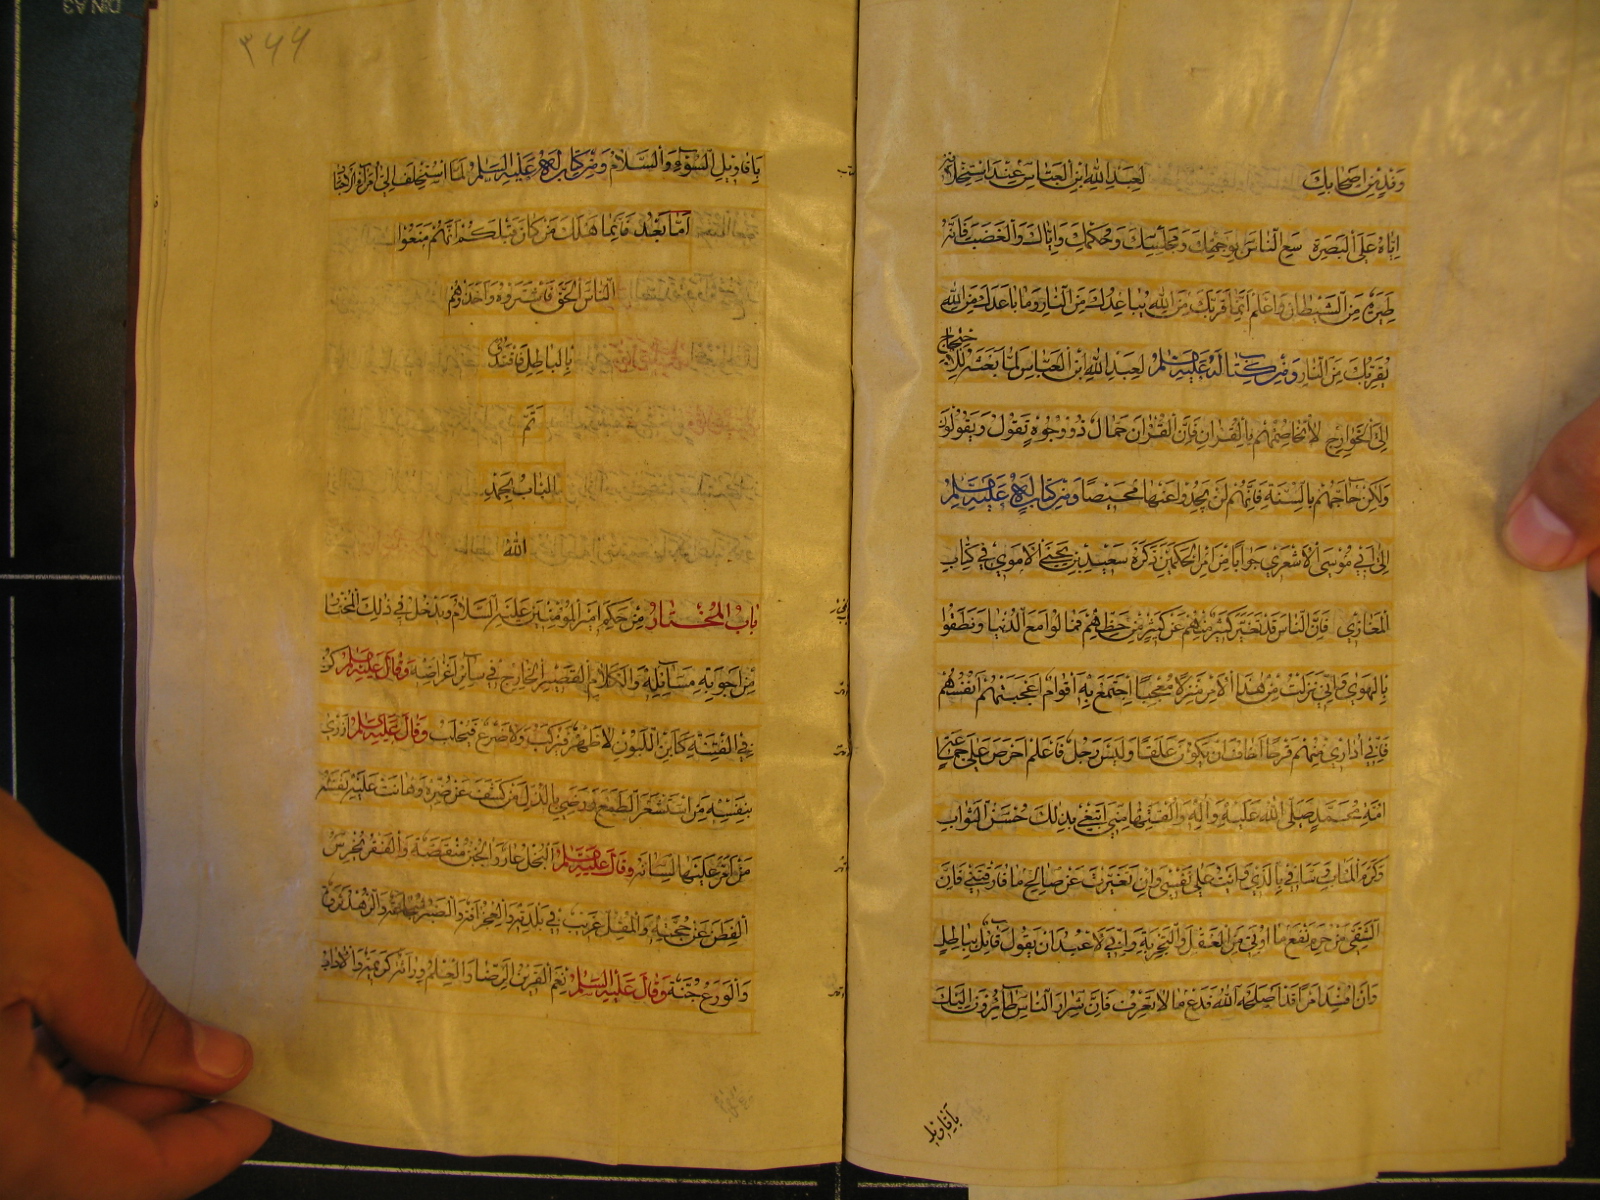 وقدبن اصحابك لعبد الله ابن العباس عند استخلافه
اياه على البصرة سع الناس بوجهك ومجلسك وحكمك واياك والغضب فانه
طيرة من الشيطان واعلم انما قربك من الله يباعدك من النار وما باعدك من الله
يقربك من النار ومن كتاب له عليه السلم لعبد الله ابن العباس لما بعثه للاحتجاج
الى الخوارج لا تخاصمهم بالقران فان القران حمال ذو وجوه تقول ويقولون
ولكن حاججهم بالسنة فانهم لن يجدوا عنها محيصا ومن كتاب له عليه السلم
الى ابي موسى الاشعري جوابا من امر الحكمين ذكره سعيد بن يحيى الاموي في كتاب
المغازي فان الناس قد تغير كثير منهم عن كثير من حظهم فمالوا مع الدنيا ونطقوا
بالهوى واني نزلت من هذا الامر منزلا معجبا اجتمع به اقوام اعجبتهم انفسهم
فاني اداري منهم قرحا اخاف ان يكون علقا وليس رجل فاعلم احرص على جماعة
امة محمد صلى الله عليه واله والفتها مني ابتغي بذلك حسن الثواب
وكرم الماب وسافي بالذي وايت على نفسي وان تغيرت عن صالح ما فارقتني فان
الشقي من حرم نفع ما اوتي من العقل والتجربة واني لاعبد ان يقول قائل بباطل
وان افسد امرا قد اصلحه الله فدع ما لا تعرف فان شرار الناس طائرون اليك
باقاويل
٣٦٦
باقاويل السوء والسلام ومن كتاب له عليه السلم لما استخلف الى امراء الاجناد
اما بعد فانما هلك من كان قبلكم انهم منعوا
الناس الحق فاشتروه واخذوهم
بالباطل فاقتدوه
تم
الباب بحمد
الله
باب المختار من حكم امير المؤمنين عليه السلام ويدخل في ذلك المختار
من اجوبة مسائله والكلام القصير الخارج في سائر اغراضه وقال عليه السلم كن
في الفتنة كابن اللبون لا ظهر فيركب ولا ضرع فيحلب وقال عليه السلم ازرى
بنفسه من استشعر الطمع ورضي بالذل من كشف عن ضره وهانت عليه نفسه
من امر عليها لسانه وقال عليه السلم البخل عار والجبن منقصة والفقر يخرس
الفطن عن حجته والمقل غريب في بلدته والعجز افة والصبر شجاعة والزهد ثروة
والورع جنة وقال عليه السلم نعم القرين الرضا والعلم وراثة كريمة والاداب